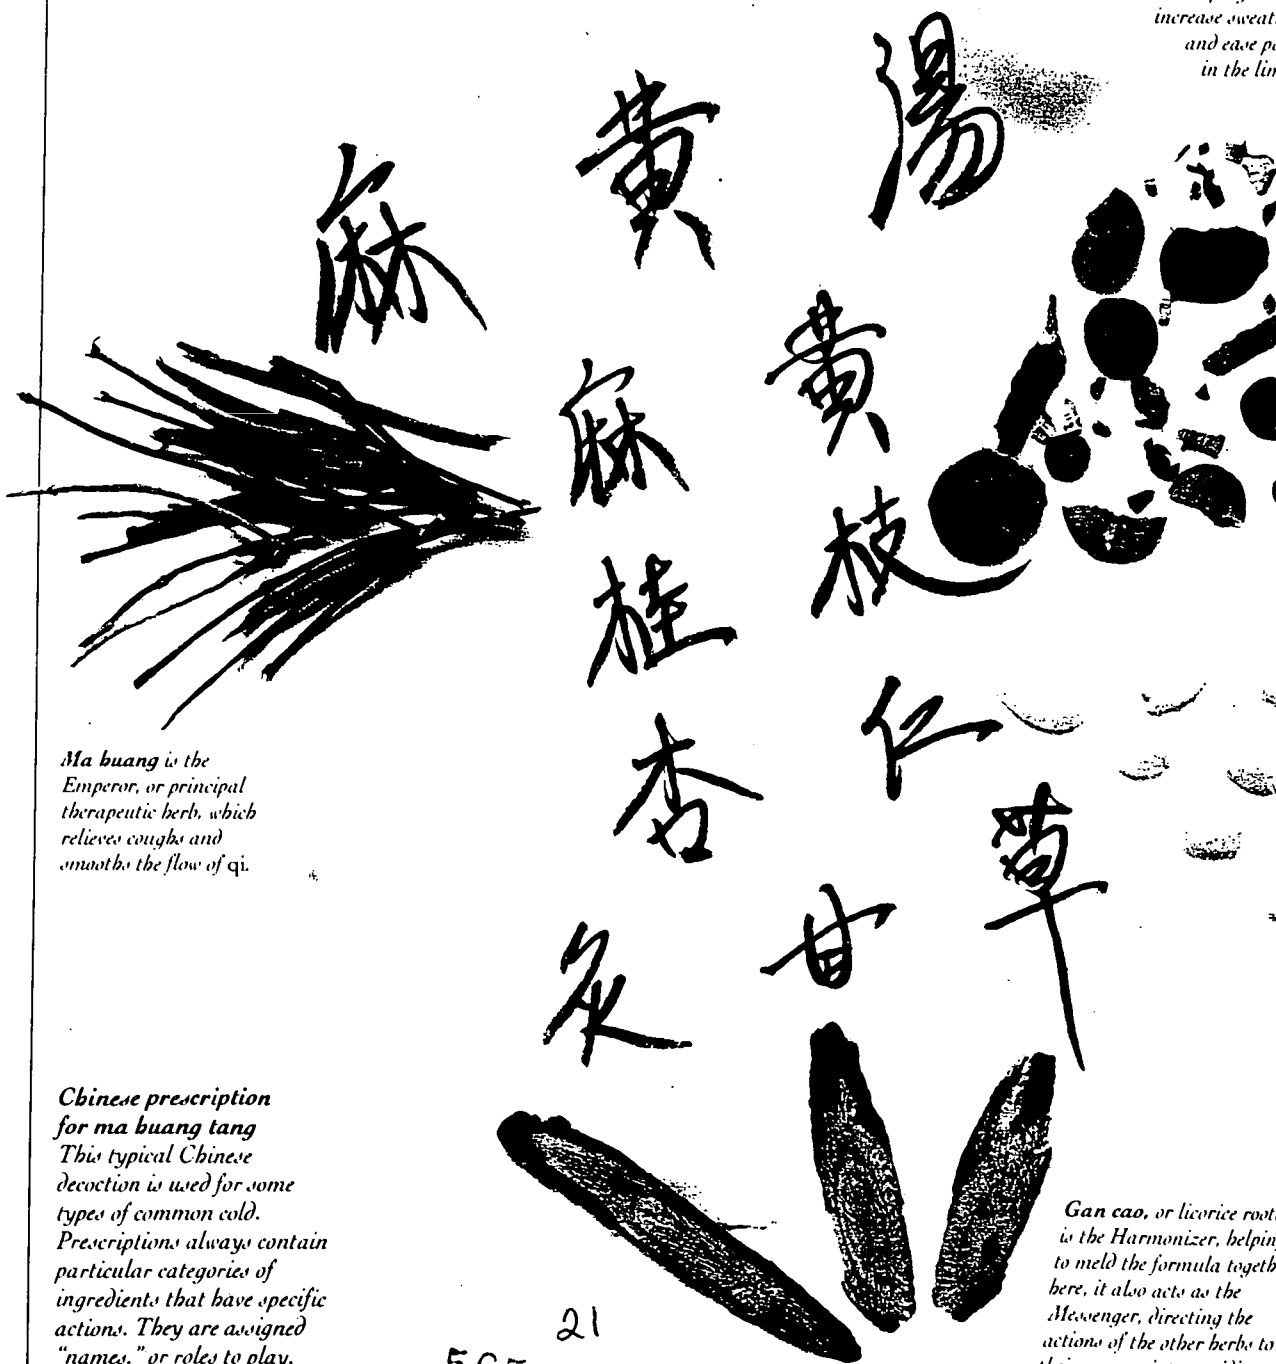 increase sweat
and ease
in the
麻黃湯
麻黃
桂枝
杏仁
炙甘草
Ma huang is the
Emperor, or principal
therapeutic herb, which
relieves coughs and
smooths the flow of qi.
Chinese prescription
for ma huang tang
This typical Chinese
decoction is used for some
types of common cold.
Prescriptions always contain
particular categories of
ingredients that have specific
actions. They are assigned
"names," or roles to play.
Gan cao, or licorice root
is the Harmonizer, helpin
to meld the formula togeth
here, it also acts as the
Messenger, directing the
actions of the other herbs to
21